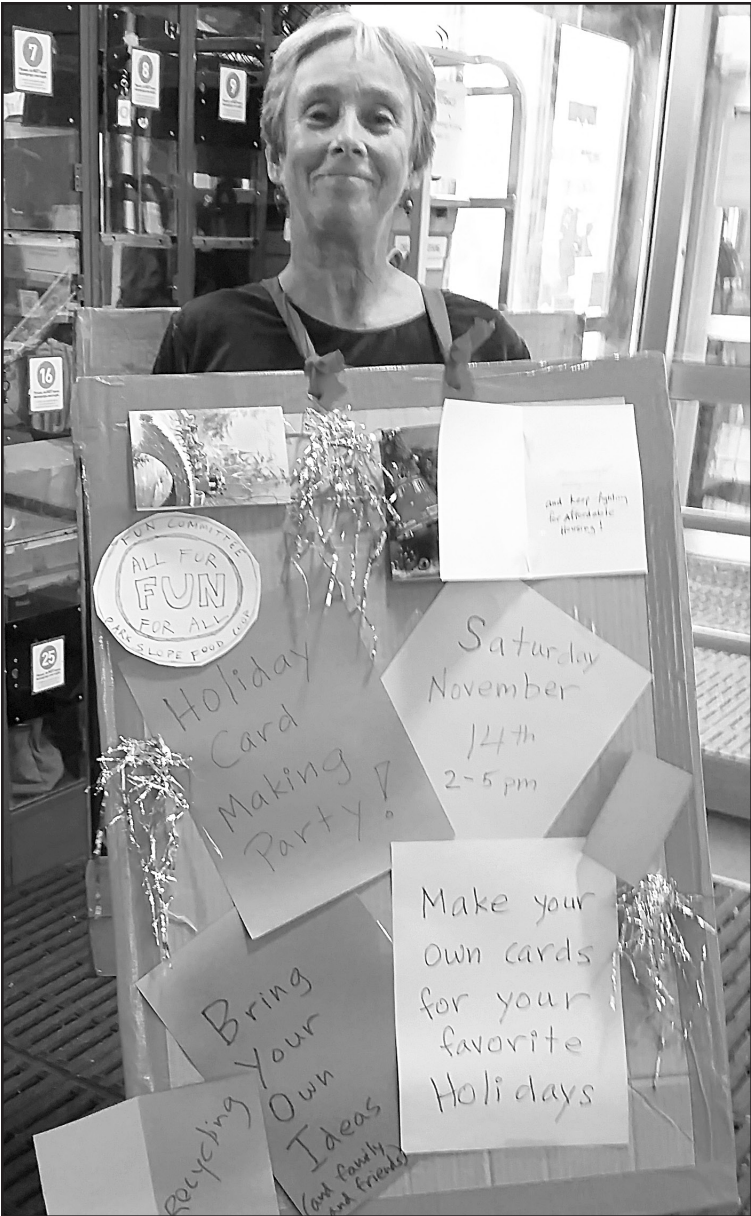 7
8
9
16
25
and keep fighting
for affordable
Housing!
FUN COMMITTEE
ALL FUR
FUN
FOR ALL
PARK SLOPE FOOD COOP
Holiday
Card
Making
Party!
Saturday
November
14th
2-5 pm
Make your
own cards
for your
favorite
Holidays
Bring
Your
Own
Ideas
(and family
and friends)
Recycling